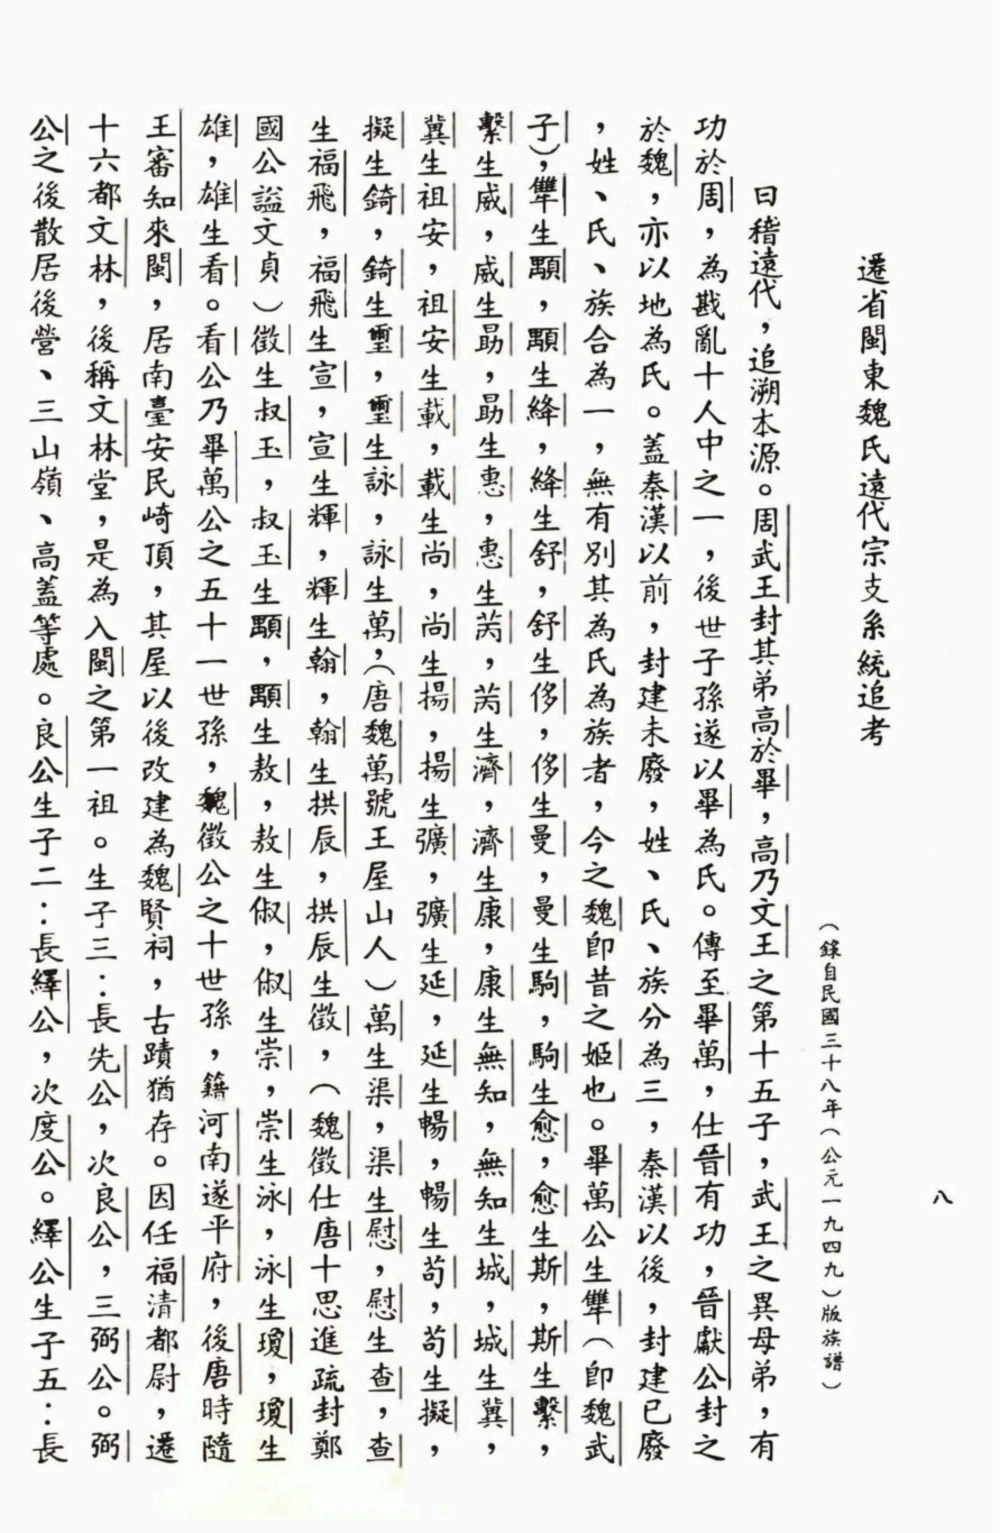 遷省閩東魏氏遠代宗支系統追考
(錄自民國三十八年(公元一九四九)版族譜)
曰稽遠代，追溯本源。周武王封其弟高於畢，高乃文王之第十五子，武王之異母弟，有
功於周，為戡亂十人中之一，後世子孫遂以畢為氏。傳至畢萬，仕晉有功，晉獻公封之
於魏，亦以地為氏。蓋秦漢以前，封建未廢，姓、氏、族分為三，秦漢以後，封建已廢
，姓、氏、族合為一，無有別其為氏為族者，今之魏即昔之姬也。畢萬公生犨(即魏武
子)，犨生顆，顆生絳，絳生舒，舒生侈，侈生曼，曼生駒，駒生愈，愈生斯，斯生繫，
繫生威，威生勗，勗生惠，惠生芮，芮生濟，濟生康，康生無知，無知生城，城生冀，
冀生祖安，祖安生載，載生尚，尚生揚，揚生彍，彍生延，延生暢，暢生苟，苟生擬，
擬生錡，錡生璽，璽生詠，詠生萬，(唐魏萬號王屋山人)萬生渠，渠生慰，慰生查，查
生福飛，福飛生宣，宣生輝，輝生翰，翰生拱辰，拱辰生徵，(魏徵仕唐十思進疏封鄭
國公謚文貞)徵生叔玉，叔玉生顒，顒生敖，敖生俶，俶生崇，崇生泳，泳生瓊，瓊生
雄，雄生看。看公乃畢萬公之五十一世孫，魏徵公之十世孫，籍河南遂平府，後唐時隨
王審知來閩，居南臺安民崎頂，其屋以後改建為魏賢祠，古蹟猶存。因任福清都尉，遷
十六都文林，後稱文林堂，是為入閩之第一祖。生子三：長先公，次良公，三弼公。弼
公之後散居後營、三山嶺、高蓋等處。良公生子二：長繹公，次度公。繹公生子五：長
八